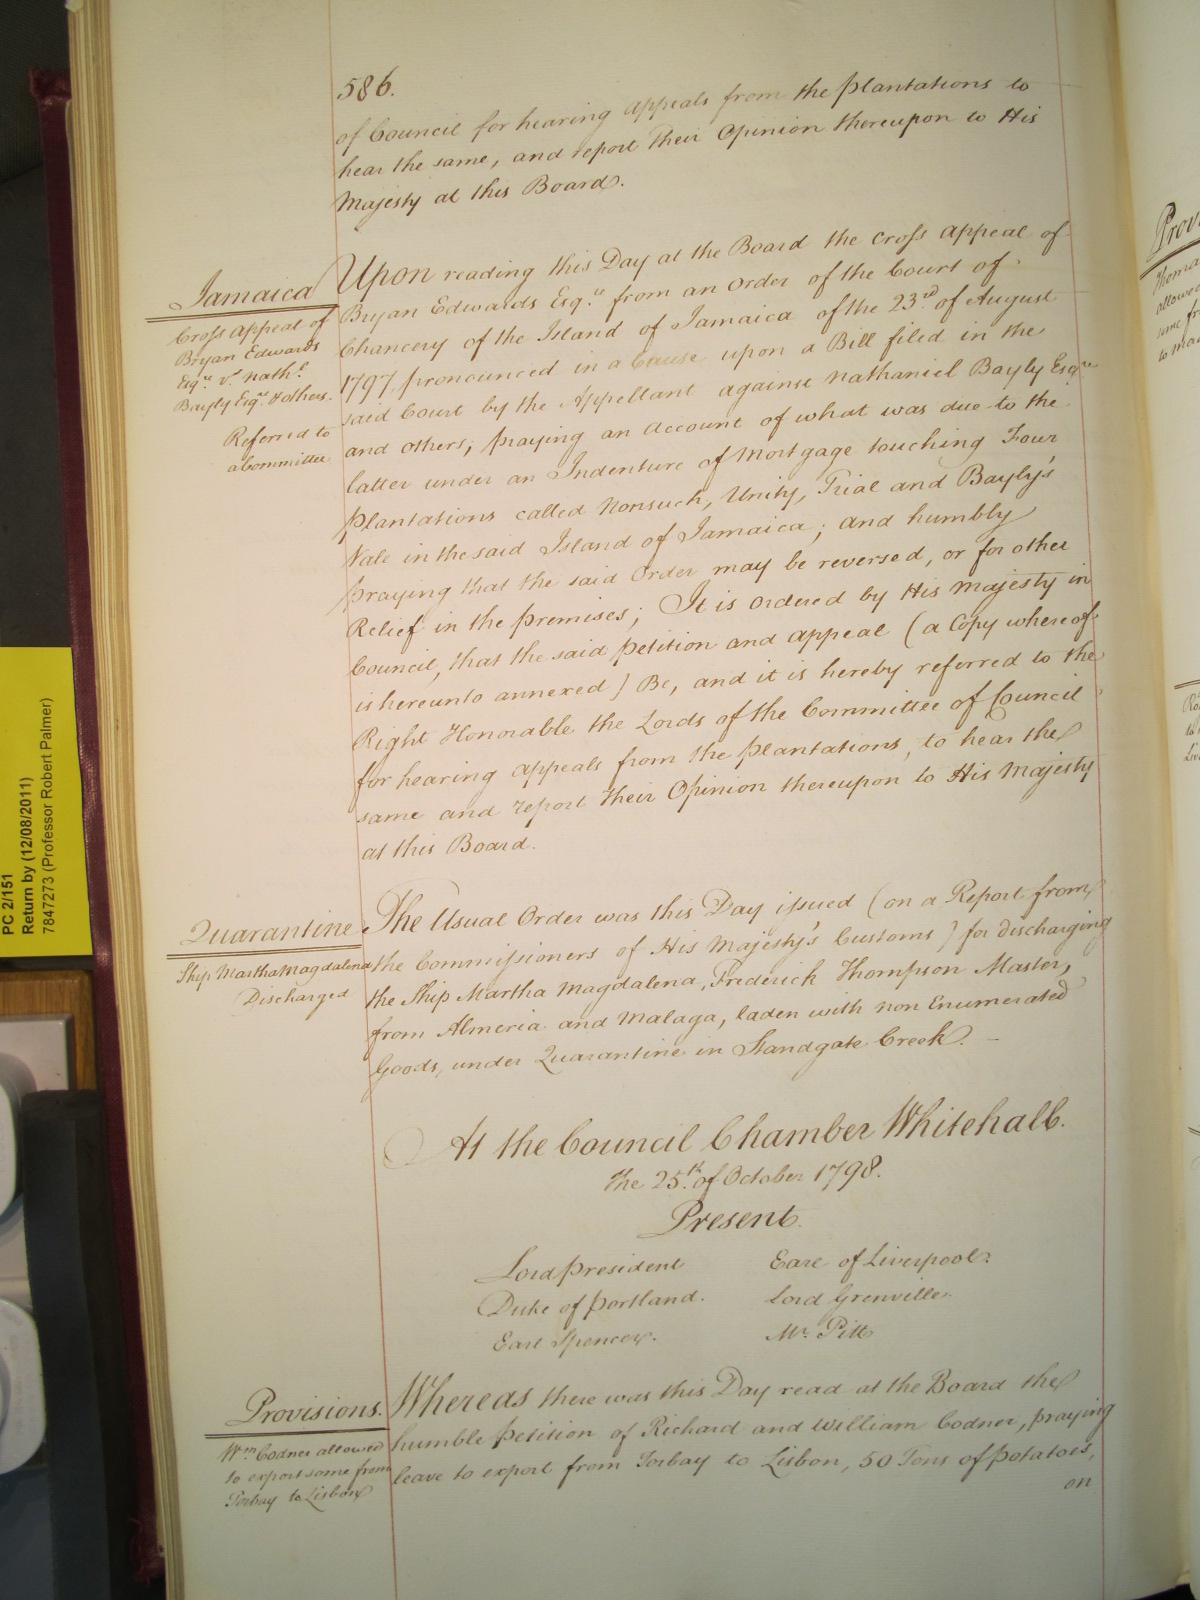 586.
of Council for hearing appeals from the Plantations to
hear the same, and report their Opinion thereupon to His
Majesty at this Board.
Jamaica
Cross Appeal of
Bryan Edwards
Esqre. vs. Nathl.
Bayly Esqre. & others.
Referred to
a Committee
Upon reading this Day at the Board the Cross Appeal of
Bryan Edwards Esqre. from an Order of the Court of
Chancery of the Island of Jamaica of the 23rd of August
1797, pronounced in a Cause upon a Bill filed in the
said Court by the Appellant against Nathaniel Bayly Esqre
and others, praying an Account of what was due to the
latter under an Indenture of Mortgage touching Four
Plantations called Nonsuch, Unity, Trial and Bayly's
Vale in the said Island of Jamaica; and humbly
praying that the said Order may be reversed, or for other
Relief in the premises; It is ordered by His Majesty in
Council, that the said Petition and Appeal (a Copy whereof
is hereunto annexed) Be, and it is hereby referred to the
Right Honorable the Lords of the Committee of Council
for hearing Appeals from the Plantations, to hear the
same and report their Opinion thereupon to His Majesty
at this Board.
Quarantine
Ship Martha Magdalena
Discharged
The Usual Order was this Day issued (on a Report from
the Commissioners of His Majesty's Customs) for discharging
the Ship Martha Magdalena, Frederick Thompson Master,
from Almeria and Malaga, laden with non Enumerated
Goods, under Quarantine in Standgate Creek.
At the Council Chamber Whitehall.
the 25th. of October 1798.
Present.
Lord President
Earl of Liverpool.
Duke of Portland.
Lord Grenville.
Earl Spencer.
Mr. Pitt
Provisions.
Wm. Codner allowed
to export some from
Torbay to Lisbon
Whereas there was this Day read at the Board the
humble Petition of Richard and William Codner, praying
leave to export from Torbay to Lisbon, 50 Tons of Potatoes,
on
PC 2/151
Return by (12/08/2011)
7847273 (Professor Robert Palmer)